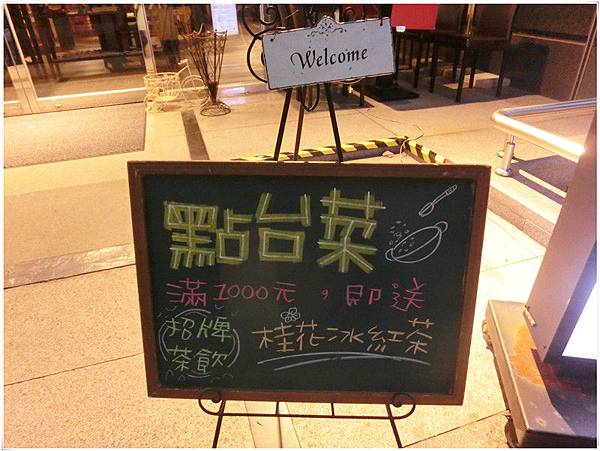 Welcome
點台菜
滿1000元，即送
招牌
茶飲
桂花冰紅茶